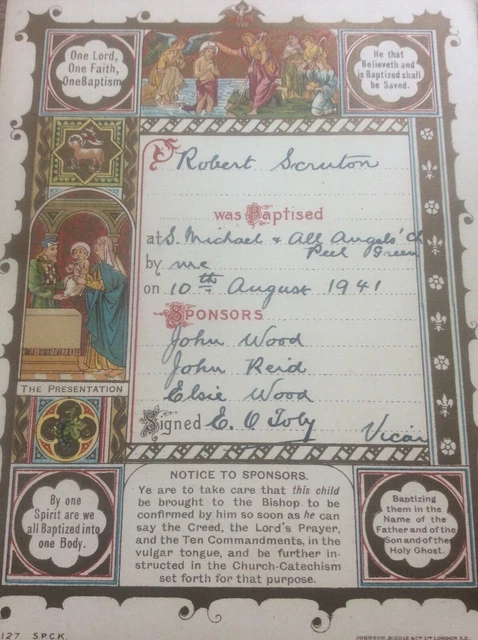 One Lord,
One Faith,
One Baptism
He that
Believeth and
is Baptized shall
be Saved.
Robert Scruton
was Baptised
at S. Michael & All Angels' Ch
Peel Green
by me
on 10th August 1941
SPONSORS
John Wood
John Reid
Elsie Wood
Signed E. O Toby Vicar
THE PRESENTATION
By one
Spirit are we
all Baptized into
one Body.
NOTICE TO SPONSORS.
Ye are to take care that this child
be brought to the Bishop to be
confirmed by him so soon as he can
say the Creed, the Lord's Prayer,
and the Ten Commandments, in the
vulgar tongue, and be further in-
structed in the Church-Catechism
set forth for that purpose.
Baptizing
them in the
Name of the
Father and of the
Son and of the
Holy Ghost.
127 S.P.C.K.